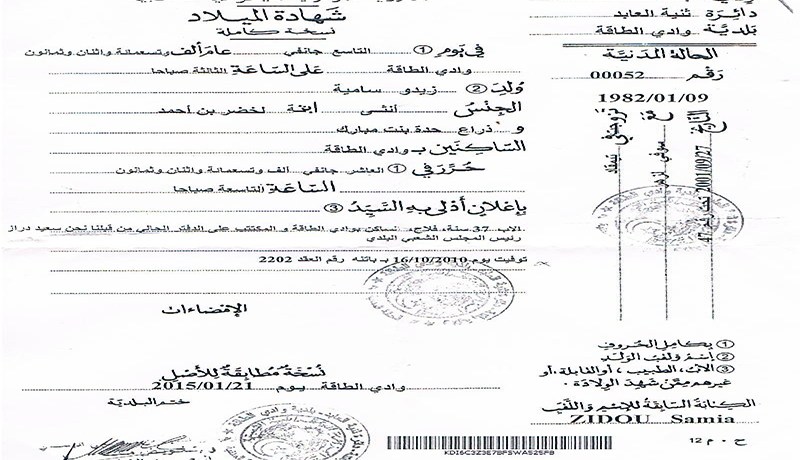 دائرة ثنية العابد
بلدية وادي الطاقة
الحالة المدنية
رقم 00052
1982/01/09
شهادة الميلاد
نسخة كاملة
في يوم ① التاسع جانفي عام ألف وتسعمائة واثنان وثمانون
وادي الطاقة على الساعة الثالثة صباحا
ولد ② زيدو سامية
الجنس أنثى ابنة لخضر بن أحمد
و ذراع حدة بنت مبارك
الساكنين ب وادي الطاقة
حرر في ① العاشر جانفي ألف وتسعمائة واثنان وثمانون
الساعة التاسعة صباحا
بإعلان أدلى به السيد ③
الاب 37 سنة، فلاح، الساكن بوادي الطاقة و المكتتب على الدفتر الحالي من قبلنا نحن سعيد دراز
رئيس المجلس الشعبي البلدي
توفيت يوم 16/10/2010 ب باتنة رقم العقد 2202
الإمضاءات
نسخة مطابقة للأصل
وادي الطاقة يوم 2015/01/21
ختم البلدية
التاريخ 2001/09/27 تحت رقم 47
تزوجت في
مع
① بكامل الحروف
② إسم ولقب الولد
③ الأب، الطبيب، أو القابلة، أو
غيرهم ممن شهد الولادة.
الكتابة السابقة للإسم واللقب
ZIDOU Samia
ح . م 12